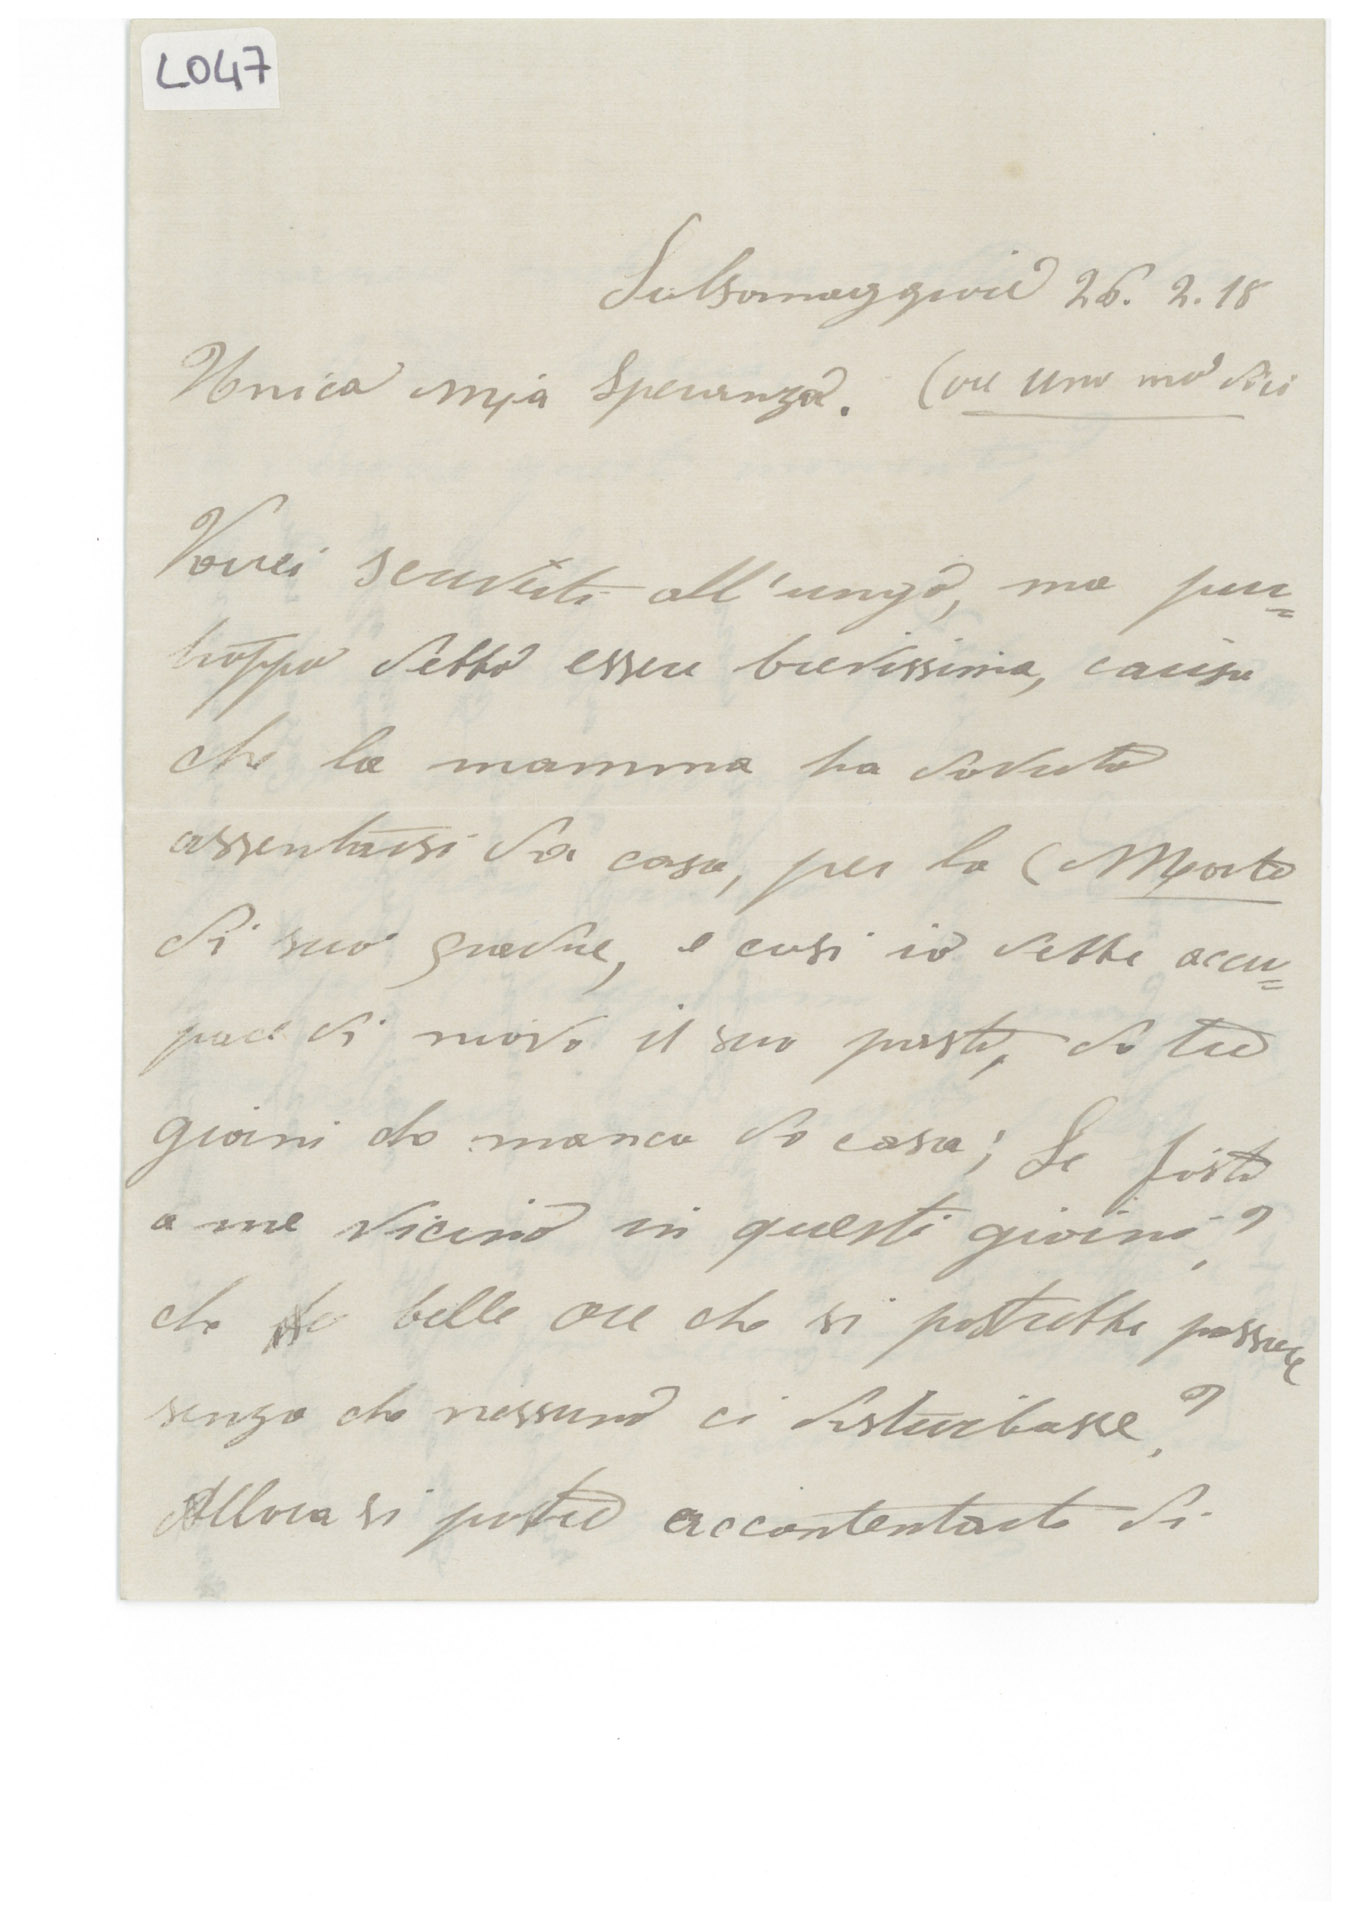 L047
Salsomaggiore 26. 2. 18
Unica mia Speranza. (ore una
Vorrei scriverti all'ungo, ma pur=
troppo debbo essere brevissima, causa
che la mamma ha dovuto
assentarsi da casa, per la (Morte
di suo padre, e cusi io debbe accu=
pare di nuovo il suo posto, da tre
giorni che manca da casa; Se foste
a me vicino in questi giorni,?
che belle ore che si potrebbe passare
senza che nessuno ci disturbasse,?
Allora si potrà accontentarti di